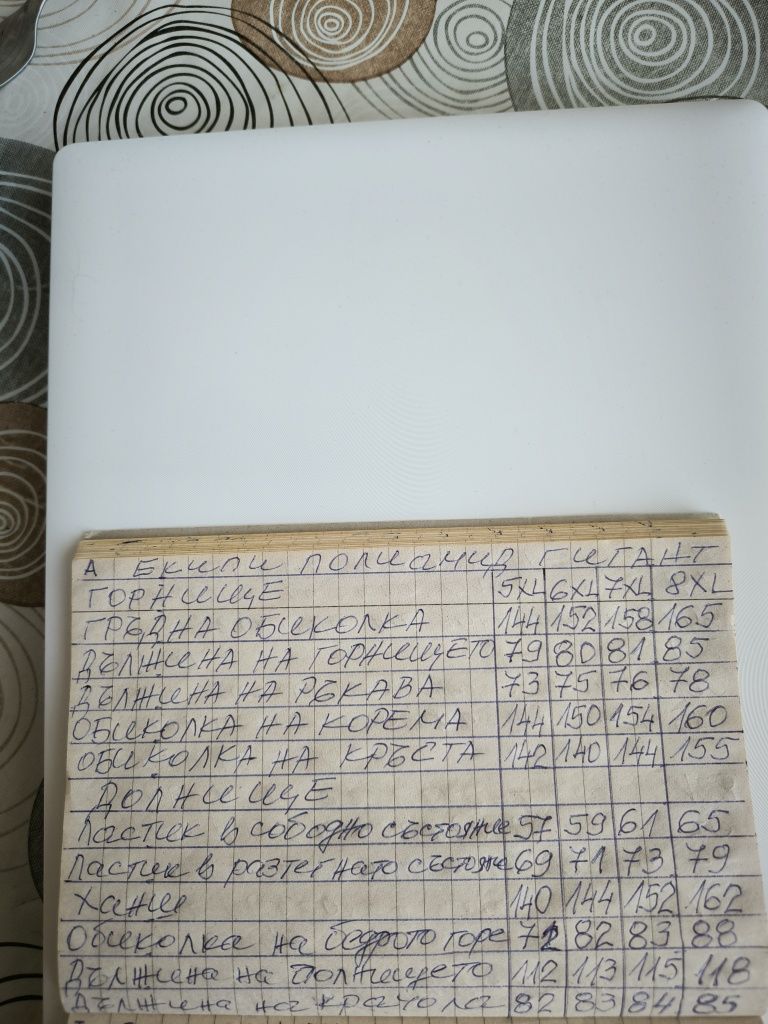 А ЕКИПИ ПОЛИАМИД ГИГАНТ
ГОРНИЩЕ 5XL 6XL 7XL 8XL
ГРЪДНА ОБИКОЛКА 144 152 158 165
ДЪЛЖИНА НА ГОРНИЩЕТО 79 80 81 85
ДЪЛЖИНА НА РЪКАВА 73 75 76 78
ОБИКОЛКА НА КОРЕМА 144 150 154 160
ОБИКОЛКА НА КРЪСТА 142 140 144 155
ДОЛНИЩЕ
Ластик в сободно състояние 57 59 61 65
Ластик в разтегнато състояние 69 71 73 79
Ханш 140 144 152 162
Обиколка на бедрото горе 82 83 88
Дължина на долнището 112 113 115 118
Дължина на крачола 82 83 84 85